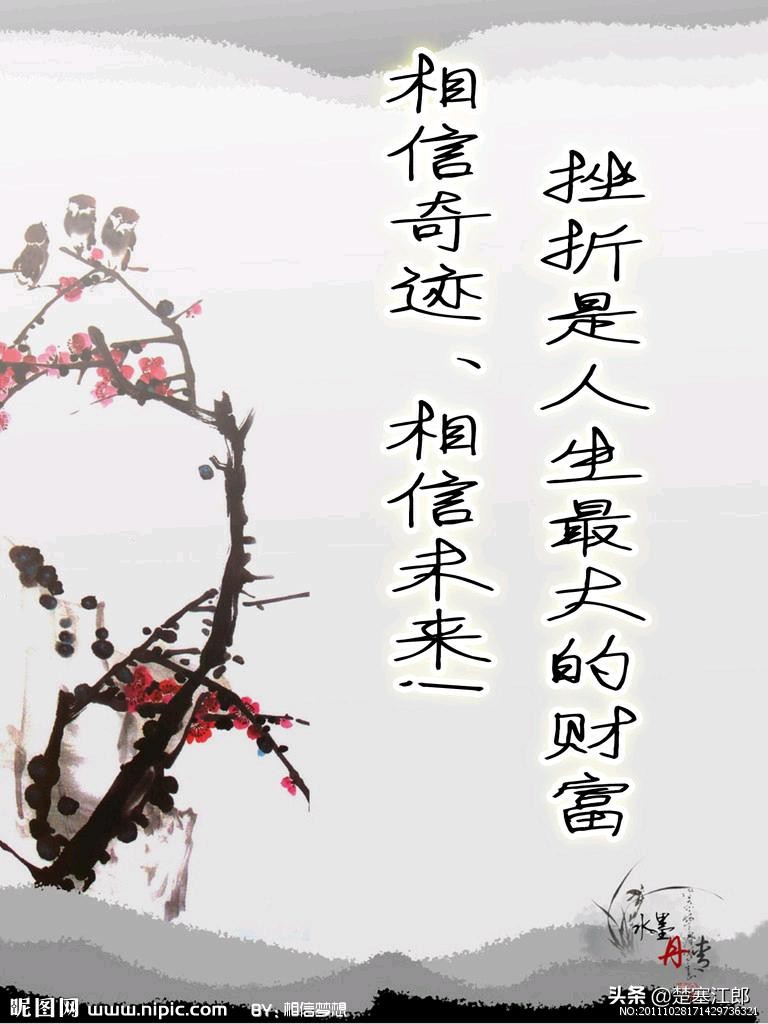 挫折是人生最大的财富
相信奇迹、相信未来!
水墨
丹情
昵图网 www.nipic.com BY: 相信梦想
头条@楚塞江郎
NO:20111028171429736321